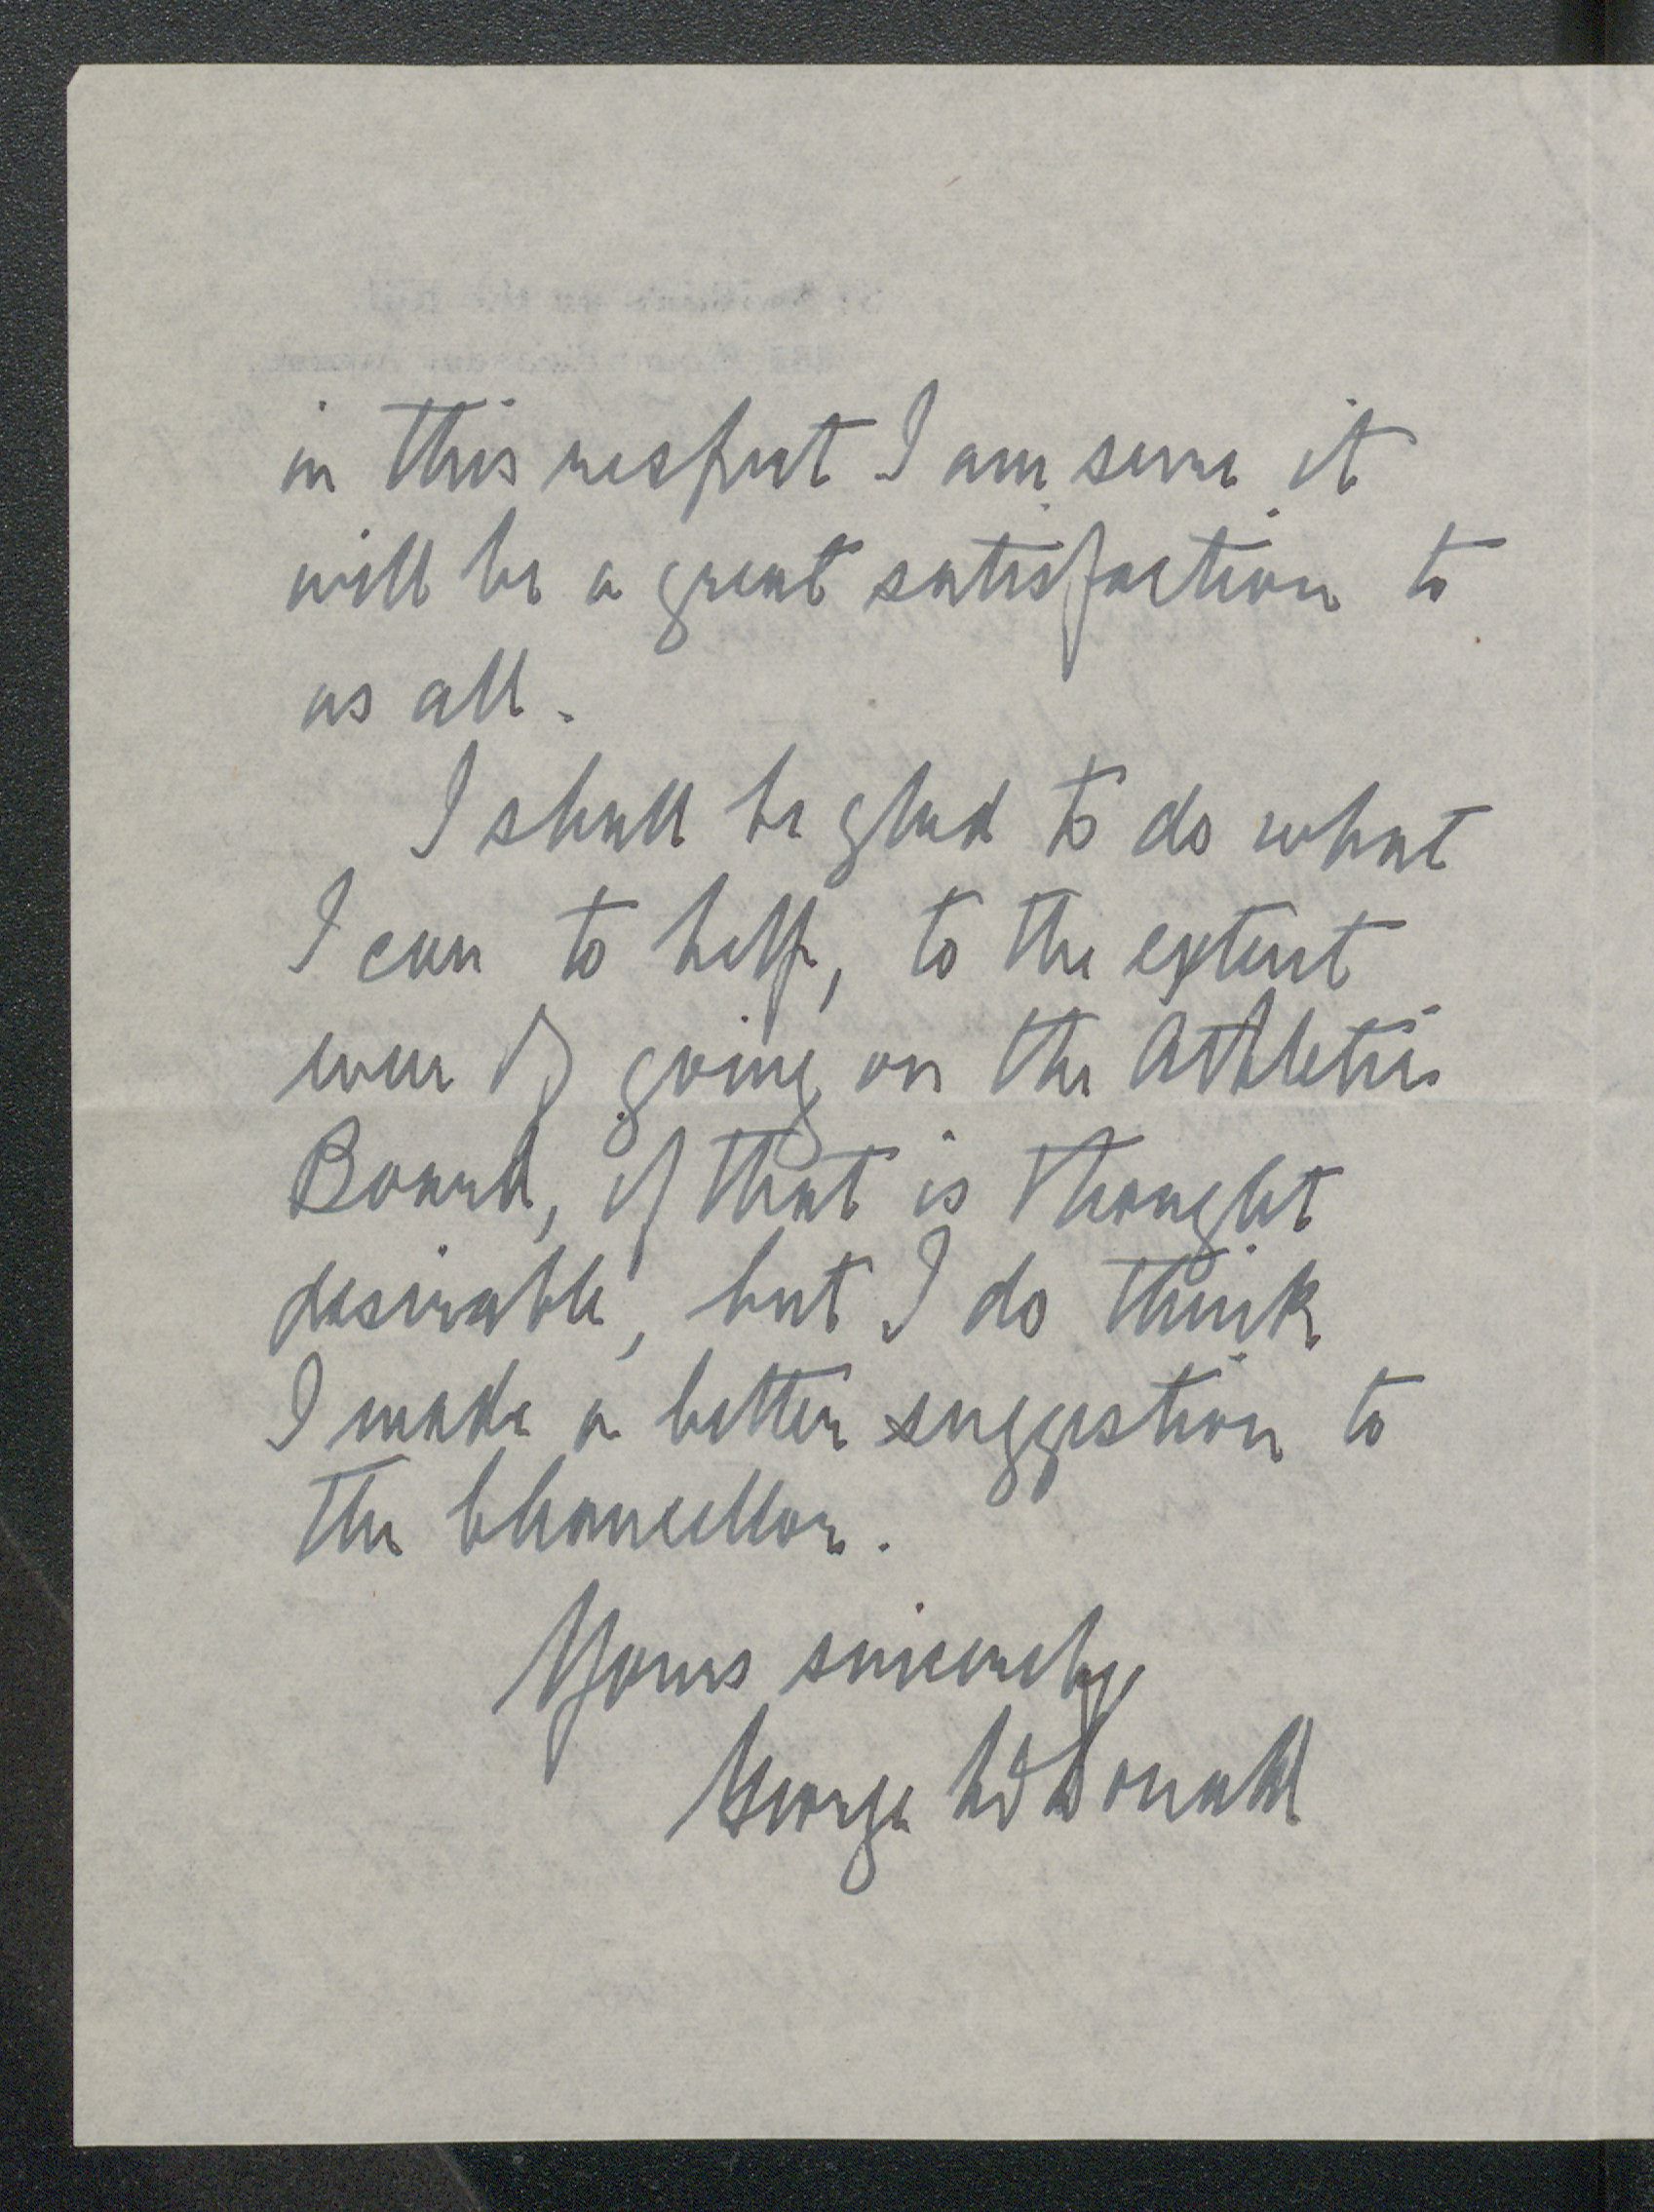 in this respect I am sure it
will be a great satisfaction to
us all.
I shall be glad to do what
I can to help, to the extent
even of going on the Athletic
Board, if that is thought
desirable, but I do think
I made a better suggestion to
the Chancellor.
Yours sincerely,
George McDonald